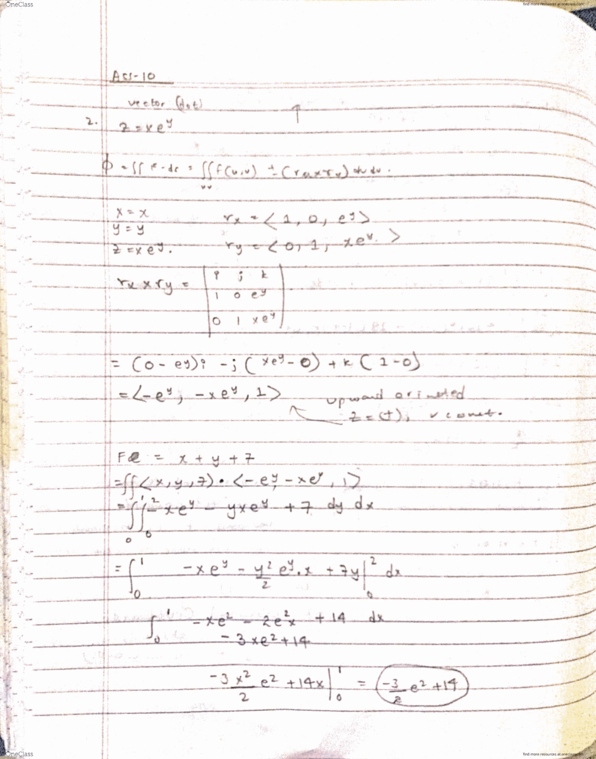 OneClass
find more resources at oneclass.com
Act-10
vector (dot)
2.
z = xe^y
↑
x = x
rx = < 1, 0, e^y >
y = y
ry = < 0, 1, xe^y >
z = xe^y.
rx × ry = | i j k |
| 1 0 e^y |
| 0 1 xe^y |
= (0 - e^y)i - j(xe^y - 0) + k(1-0)
= <-e^y, -xe^y, 1>
upward oriented
z = (+),
= x + y + 7
= ∫∫ <x, y, 7> • <-e^y, -xe^y, 1>
= ∫_0^1 ∫_0^2 - xe^y - yxe^y + 7 dy dx
= ∫_0^1 -xe^y - y^2/2 e^y . x + 7y |_0^2 dx
∫_0^1 -xe^2 - 2e^2x + 14 dx
-3xe^2 + 14
-3 x^2/2 e^2 + 14x |_0^1 = -3/2 e^2 + 14
OneClass
find more resources at oneclass.com